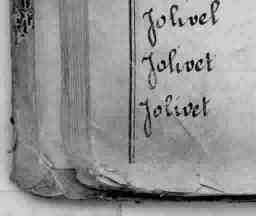 Jolivel
Jolivet
Jolivet